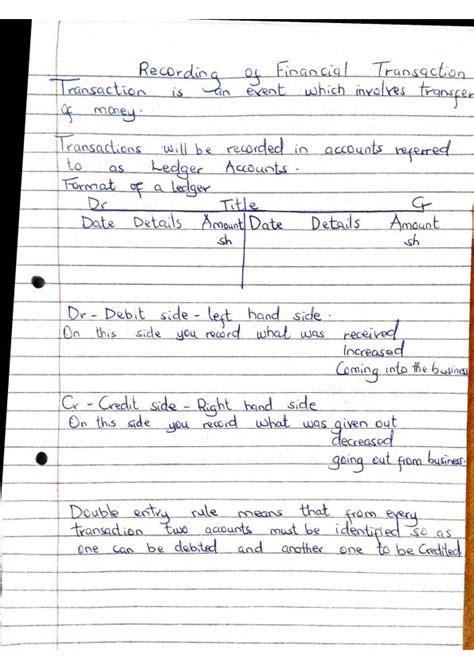 Recording of Financial Transaction
Transaction is an event which involves transfer
of money.
Transactions will be recorded in accounts referred
to as Ledger Accounts.
Format of a ledger
Dr Title Cr
Date Details Amount Date Details Amount
sh sh
Dr - Debit side - left hand side.
On this side you record what was received
Increased
Coming into the business
Cr - Credit side - Right hand side
On this side you record what was given out
decreased
going out from business.
Double entry rule means that from every
transaction two accounts must be identified so as
one can be debited and another one to be Credited